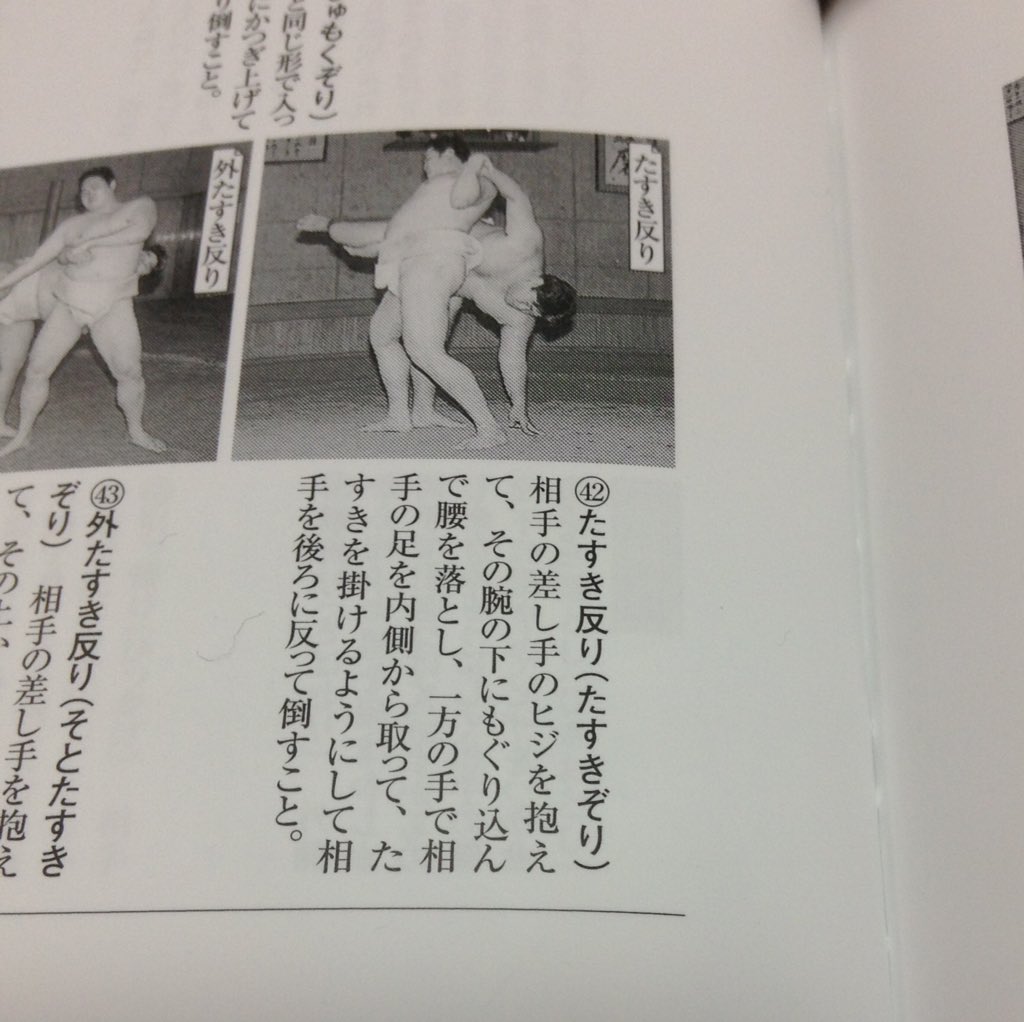 ゅもくぞり)
と同じ形で入っ
にかつぎ上げて
り倒すこと。
たすき反り
外たすき反り
㊷たすき反り(たすきぞり)
相手の差し手のヒジを抱え
て、その腕の下にもぐり込ん
で腰を落とし、一方の手で相
手の足を内側から取って、た
すきを掛けるようにして相
手を後ろに反って倒すこと。
㊸外たすき反り(そとたすき
ぞり) 相手の差し手を抱え
て、その上、